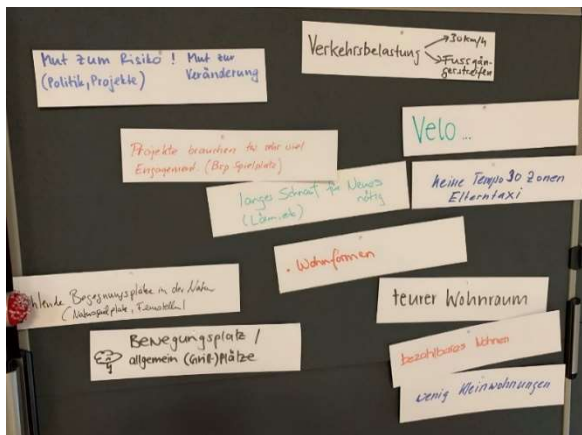 Mut zum Risiko ! Mut zur
(Politik, Projekte) Veränderung
Verkehrsbelastung → 30km/h
→ Fussgän-
gerstreifen
Velo ...
Projekte brauchen sehr viel
Engagement. (Bsp Spielplatz)
langer Schnauf für Neues
(Lärm, etc) nötig
keine Tempo 30 Zonen
Elterntaxi
• Wohnformen
fehlende Begegnungsplätze in der Natur
(Naturspielplätze, Feuerstellen)
teurer Wohnraum
Bewegungsplatz /
allgemein (Grill-)Plätze
bezahlbares Wohnen
wenig Kleinwohnungen